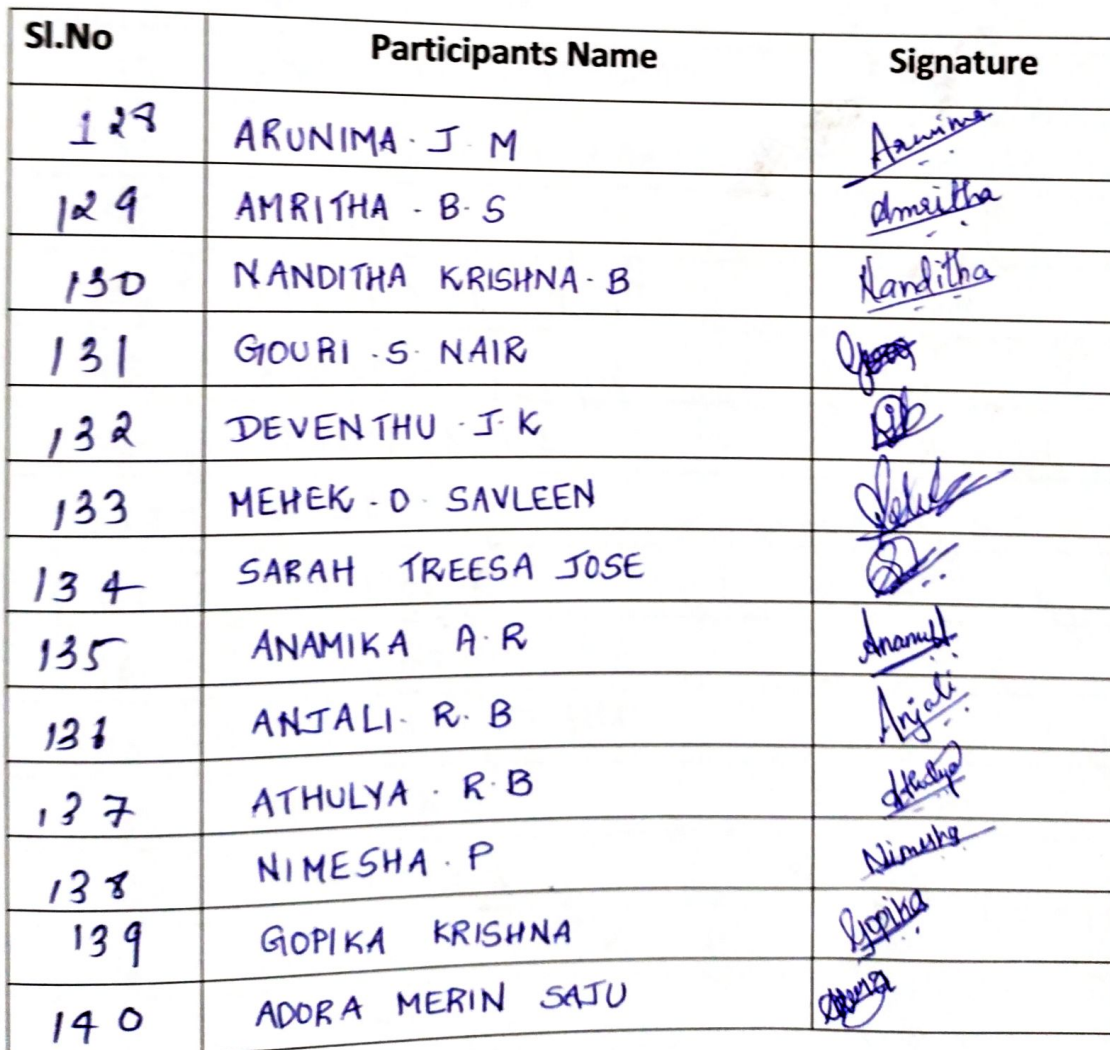 Sl.No Participants Name Signature
128 ARUNIMA. J. M Arunima
129 AMRITHA - B. S Amritha
130 NANDITHA KRISHNA. B Nanditha
131 GOURI .S. NAIR
132 DEVENTHU .J. K
133 MEHEK - O SAVLEEN
134 SARAH TREESA JOSE
135 ANAMIKA A. R
136 ANJALI. R. B Anjali
137 ATHULYA . R. B Athulya
138 NIMESHA. P Nimesha
139 GOPIKA KRISHNA Gopika
140 ADORA MERIN SAJU